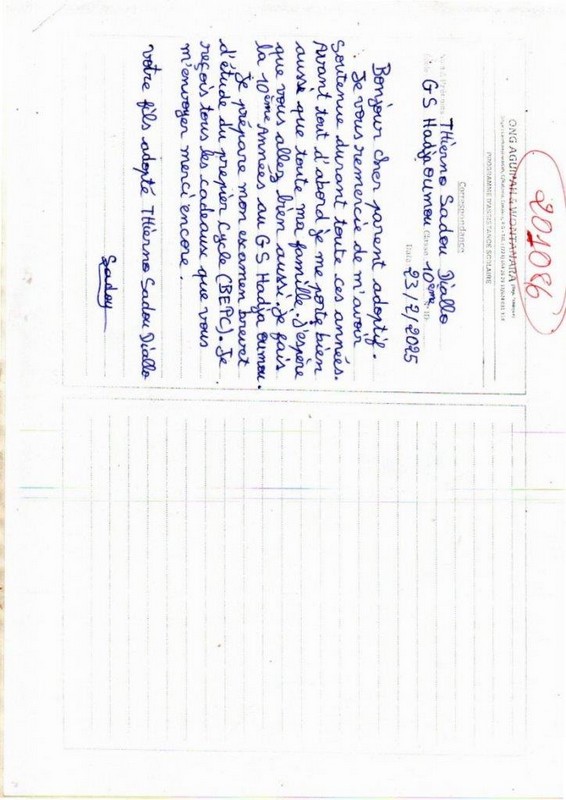 201086
ONG AGUINAH & WONTANARA
PROGRAMME D'ASSISTANCE SCOLAIRE
Correspondance
THierno Sadou Diallo
GS Hadja oumou Classe 10ème
Date 23/2/2025
Bonjour cher parent adoptif.
Je vous remercie de m'avoir
Soutenue durant toute ces années.
Avant tout d'abord je me porte bien
aussi que toute ma famille. J'espère
que vous allez bien aussi. Je fais
la 10ème Années au GS Hadja oumou.
Je prépare mon examen brevet
d'étude du premier cycle (BEPC). Je
reçois tous les cadeaux que vous
m'envoyer merci encore.
votre fils adopté THierno Sadou Diallo
Sadou